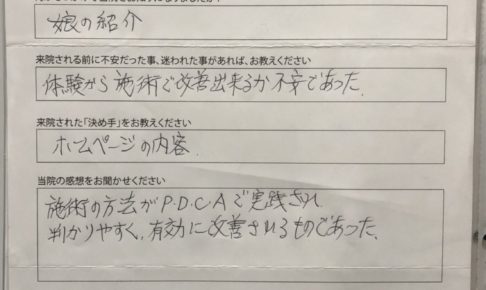 娘の紹介
来院される前に不安だった事、迷われた事があれば、お教えください
体験から施術で改善出来るか不安であった.
来院された「決め手」をお教えください
ホームページの内容.
当院の感想をお聞かせください
施術の方法がP.D.C.Aで実践され
判かりやすく、有効に改善されるものであった.